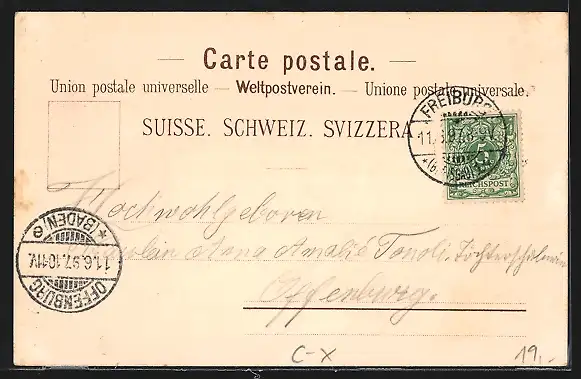 Carte postale.
Union postale universelle — Weltpostverein. — Unione postale universale.
SUISSE. SCHWEIZ. SVIZZERA.
FREIBURG
11.6.97.8-9V.
* (BREISGAU)
5
REICHSPOST
Hochwohlgeboren
Fräulein Anna Amalie
Offenburg.
OFFENBURG
11.6.97.10-11V.
* (BADEN) e
C-X
19,-